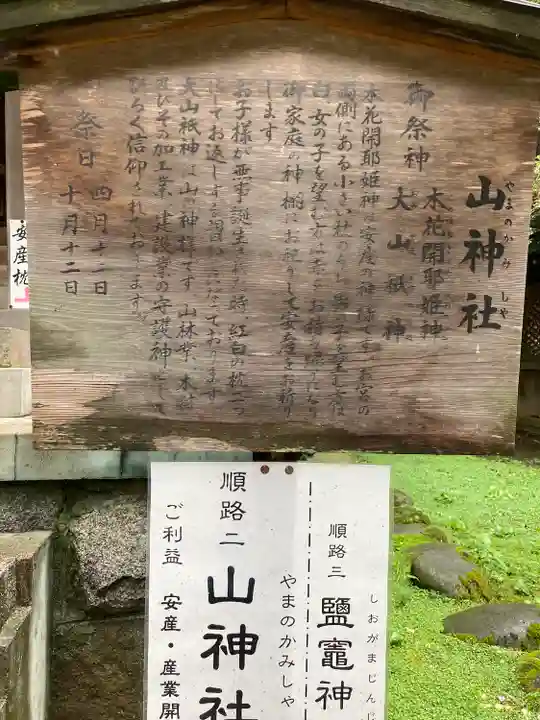 山神社
やまのかみしゃ
御祭神
木花開耶姫神
大山祇神
木花開耶姫神は安産の神様です。お宮の
両側にある小さい社の
女の子を望む方は赤を
御家庭の神棚にお祀りして安産をお祈り
します
お子様が無事誕生された時、紅白の枕二つ
にしてお返しする習いになっております
大山祇神は山の神様です 山林業、木材
及びその加工業、建設業の守護神として
ひろく信仰されております。
祭日
四月十二日
十月十二日
安産枕
順路三
しおがまじんじ
鹽竈神
順路二
やまのかみしゃ
山神社
ご利益 安産・産業開